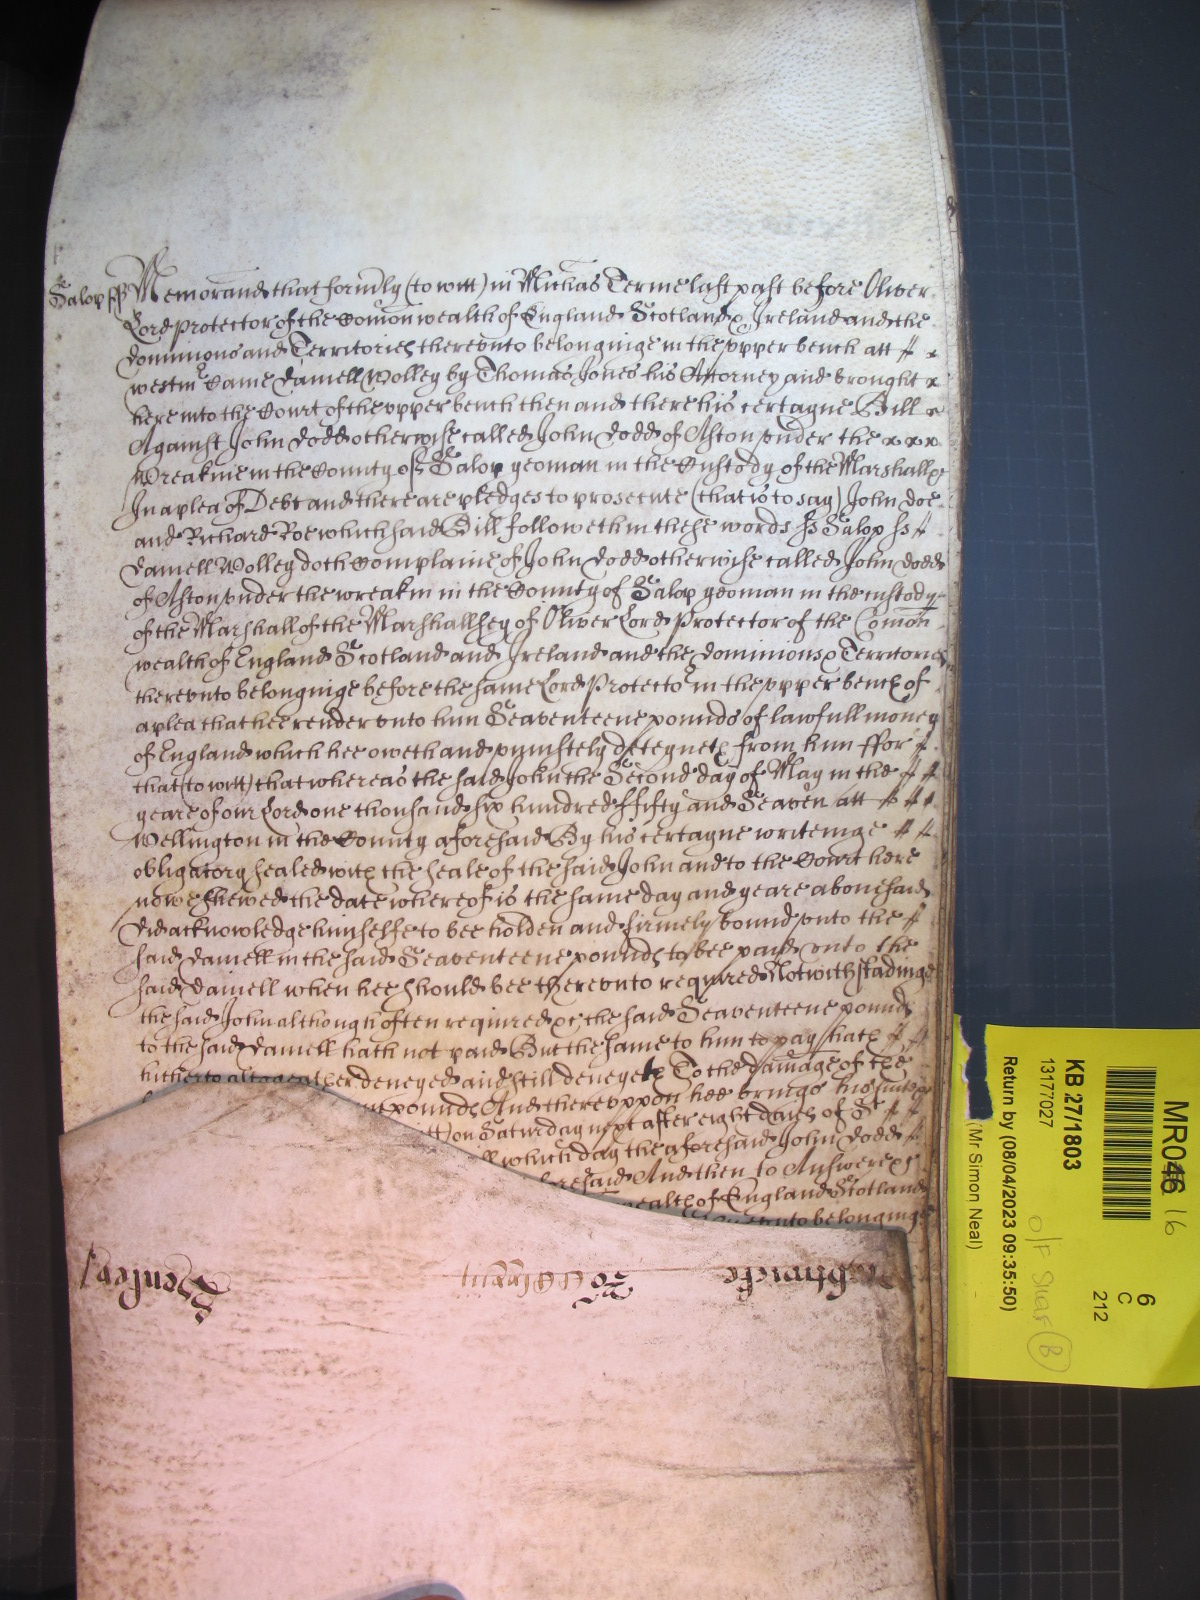 Salop ss Memorand that form̄ly (to witt) in Michas Terme last past before Oliver
Lord Protector of the Comon wealth of England Scotland & Ireland and the
dominions and Territories therevnto belonginge in the vpper bench att
westm̄ Came Daniell Wolley by Thomas Jones his Attorney and brought
here into the Court of the vpper bench then and there his certayne Bill
Against John Dodd otherwise called John Dodd of Aston vnder the
Wreakine in the County of Salop yeoman in the Custody of the Marshall &c
In a plea of Debt and there are pledges to prosecute (that is to say) John Doe
and Richard Roe which said Bill followeth in these words ss Salop ss
Daniell Wolley doth Complaine of John Dodd otherwise called John Dodd
of Aston vnder the wreakin in the County of Salop yeoman in the custody
of the Marshall of the Marshallsey of Oliver Lord Protector of the Comon
wealth of England Scotland and Ireland and the dominions & Territories
therevnto belonginge before the same Lord Protector in the vpper bench of
a plea that hee render vnto him Seaventeene pounds of lawfull money
of England which hee oweth and vniustely deteyneth from him ffor
that (to witt) that whereas the said John the Second day of May in the
yeare of our Lord one thousand six hundred ffifty and Seaven att
Wellington in the County aforesaid By his certayne writeinge
obligatory sealed with the seale of the said John and to the Court here
nowe shewed the date whereof is the same day and yeare abouesaid
Did acknowledge himselfe to bee holden and firmely bound vnto the
said Daniell in the said Seaventeene pounds to bee paid vnto the
said Daniell when hee should bee therevnto required Notwithstādinge
the said John although often required &c the said Seaventeene pounds
to the said Daniell hath not paid But the same to him to pay hath
hitherto altogeather denyed and still denyeth To the damage of the
pounds And therevppon hee brings his suite &c
on Saturday next after eight dayes of St
which day the aforesaid John Dodd
And then to Answere &c
wealth of England Scotland
vnto belonginge
MR046 16
6
C
212
KB 27/1803
13177027
Return by (08/04/2023 09:35:50)
(Mr Simon Neal)
O/F Shelf B